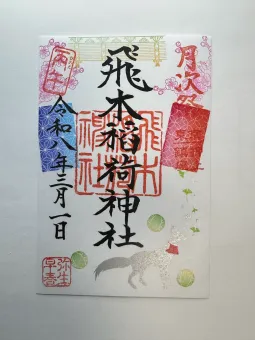 月次祭
飛木稲荷神社
飛木
稲荷
神社
丙午
令和八年三月一日
弥生
早春